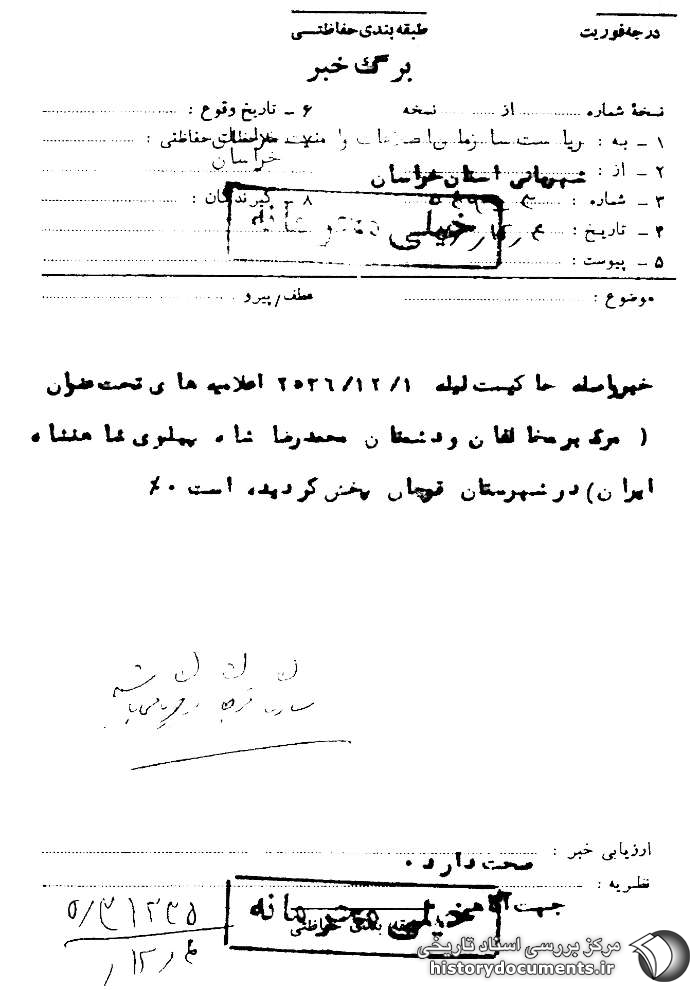 درجه فوریت
طبقه‌بندی حفاظتی
برگ خبر
نسخهٔ شماره از نسخه
۱ ـ به : ریاست سازمان اطلاعات و امنیت خراسان
۲ ـ از : شهربانی استان خراسان
۳ ـ شماره :
۴ ـ تاریخ :
۵ ـ پیوست :
۶ ـ تاریخ وقوع :
۷ ـ ملاحظات حفاظتی :
۸ ـ گیرندگان :
خیلی محرمانه
موضوع :
عطف/پیرو
خبر واصله حاکیست لیله ۲۵۳۶/۱۲/۱ اعلامیه های تحت عنوان
( مرگ بر مخالفان و دشمنان محمدرضا شاه پهلوی شاهنشاه
ایران) در شهرستان قوچان پخش گردیده است ۰٪
ارزیابی خبر :
صحت دارد ۰
نظریه :
جهت آگاهی
خیلی محرمانه
طبقه بندی حفاظتی
مرکز بررسی اسناد تاریخی
historydocuments.ir